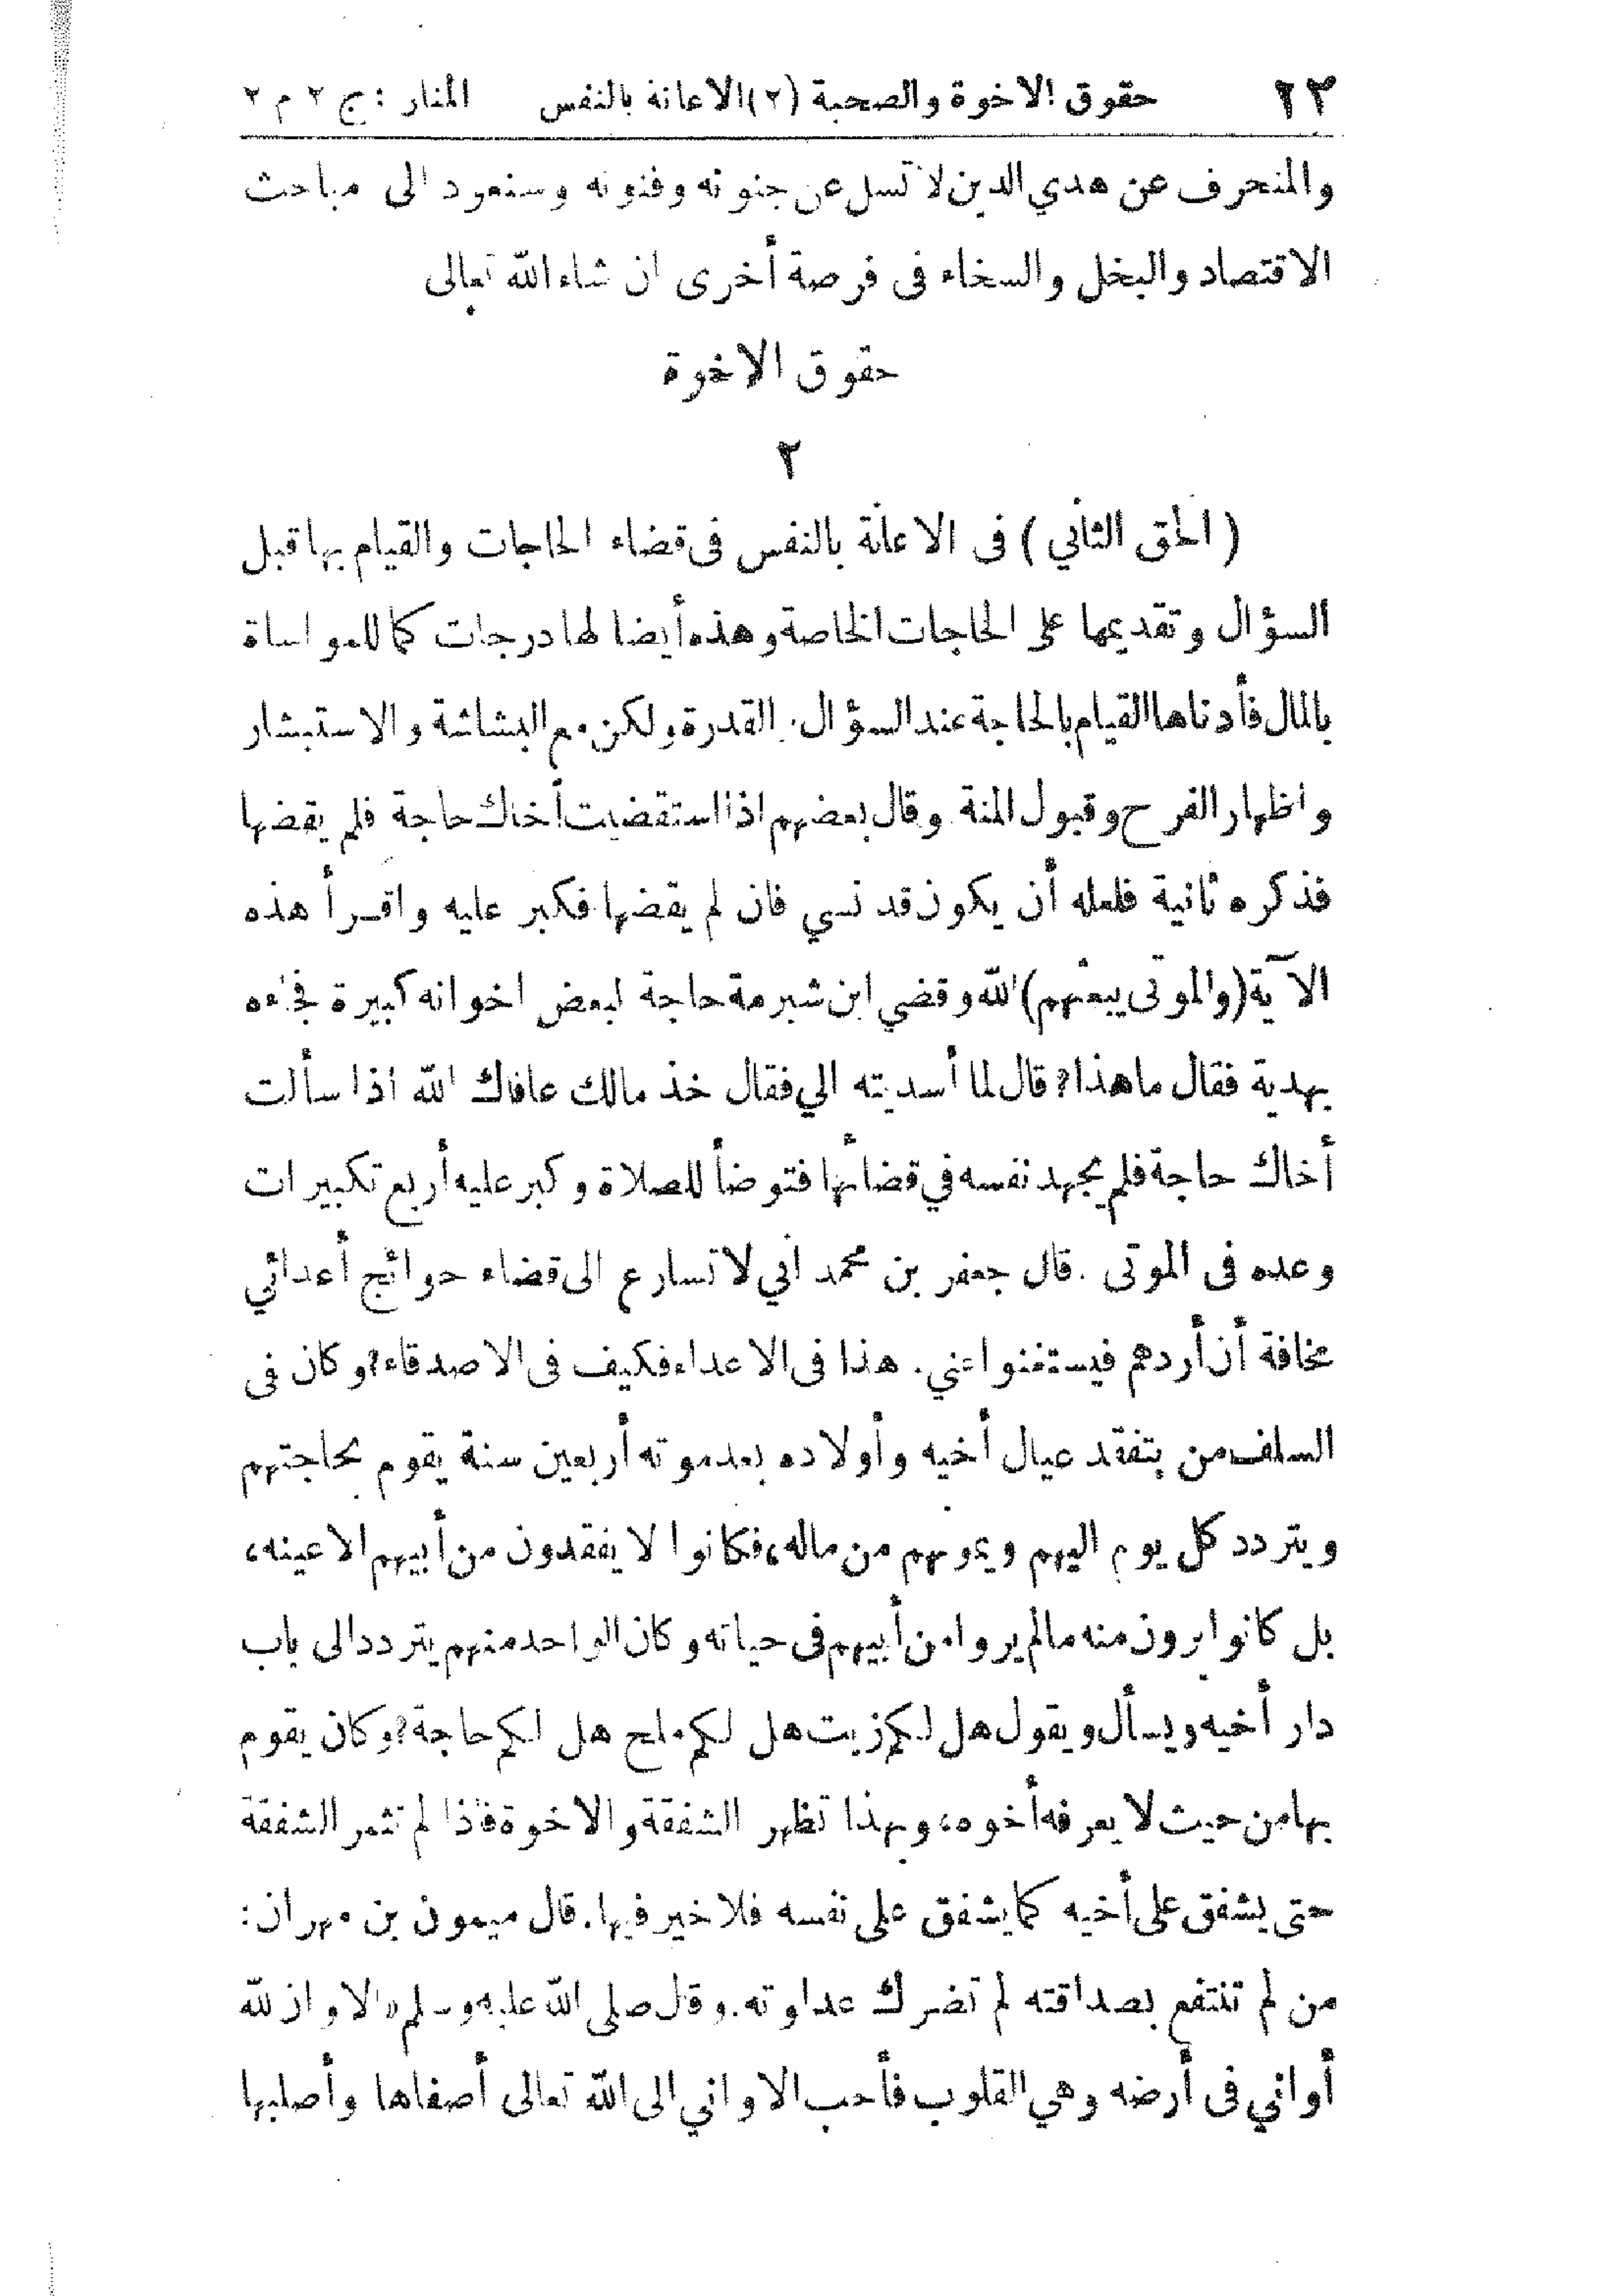 ٢٣ حقوق الاخوة والصحبة (٢) الاعانة بالنفس المنار : ج ٢ م ٢
والمنحرف عن هدي الدين لا تسل عن جنونه وفنونه وسنعود الى مباحث
الاقتصاد والبخل والسخاء فى فرصة أخرى ان شاء الله تعالى
حقوق الاخوة
٢
( الحق الثاني ) فى الاعانة بالنفس فى قضاء الحاجات والقيام بها قبل
السؤال وتقديمها على الحاجات الخاصة وهذه أيضا لها درجات كما للمواساة
بالمال فأدناها القيام بالحاجة عند السؤال والقدرة ولكن مع البشاشة والاستبشار
واظهار الفرح وقبول المنة وقال بعضهم اذا استقضيت أخاك حاجة فلم يقضها
فذكره ثانية فلعله أن يكون قد نسي فان لم يقضها فكبر عليه واقرأ هذه
الآية (والموتى يبعثهم) الله وقضي ابن شبرمة حاجة لبعض اخوانه كبيرة فجاءه
بهدية فقال ماهذا؟ قال لما أسديته الي فقال خذ مالك عافاك الله اذا سألت
أخاك حاجة فلم يجهد نفسه في قضائها فتوضأ للصلاة وكبر عليه أربع تكبيرات
وعده فى الموتى . قال جعفر بن محمد اني لا تسارع الى قضاء حوائج أعدائي
مخافة أن أردهم فيستغنوا عني . هذا فى الاعداء فكيف فى الاصدقاء؟ وكان فى
السلف من يتفقد عيال أخيه وأولاده بعد موته أربعين سنة يقوم بحاجتهم
ويتردد كل يوم اليهم ويمونهم من ماله، فكانوا لا يفقدون من أبيهم الا عينه،
بل كانوا يرون منه مالم يروا من أبيهم فى حياته وكان الواحد منهم يتردد الى باب
دار أخيه ويسأل ويقول هل لكم زيت هل لكم ملح هل لكم حاجة؟ وكان يقوم
بها من حيث لا يعرفه أخوه، وبهذا تظهر الشفقة والاخوة فاذا لم تثمر الشفقة
حتى يشفق على أخيه كما يشفق على نفسه فلا خير فيها. قال ميمون بن مهران :
من لم تنتفع بصداقته لم تضرك عداوته. وقال صلى الله عليه وسلم «الا وان لله
أواني فى أرضه وهي القلوب فأحب الاواني الى الله تعالى أصفاها وأصلبها